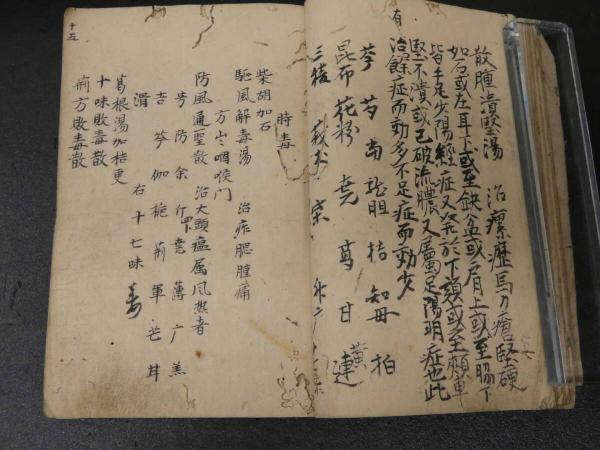 散腫潰堅湯 治瘰歷馬刀瘡堅硬
如石或在耳上或至缺盆或肩上或至脇下
皆手足少陽經症又発於下頦或至頰車
堅不潰或已破流膿又属足陽明症也此
治餘症而動多不足症而動少
有
芩 芍 歸 龍胆 桔 知母 柏
昆布 花粉 堯 葛 甘 黃連
三稜 莪朮
時毒
柴胡加石
驅風解毒湯 治痄腮腫痛
方出咽喉門
防風通聖散 治大頭瘟属风热者
芎 防 余 斤 堯 薄 广 羗
吉 芩 伽 梔 荊 軍 芒 甘
滑 右十七味
葛根湯加桔更
十味敗毒散
荊方敗毒散
十五